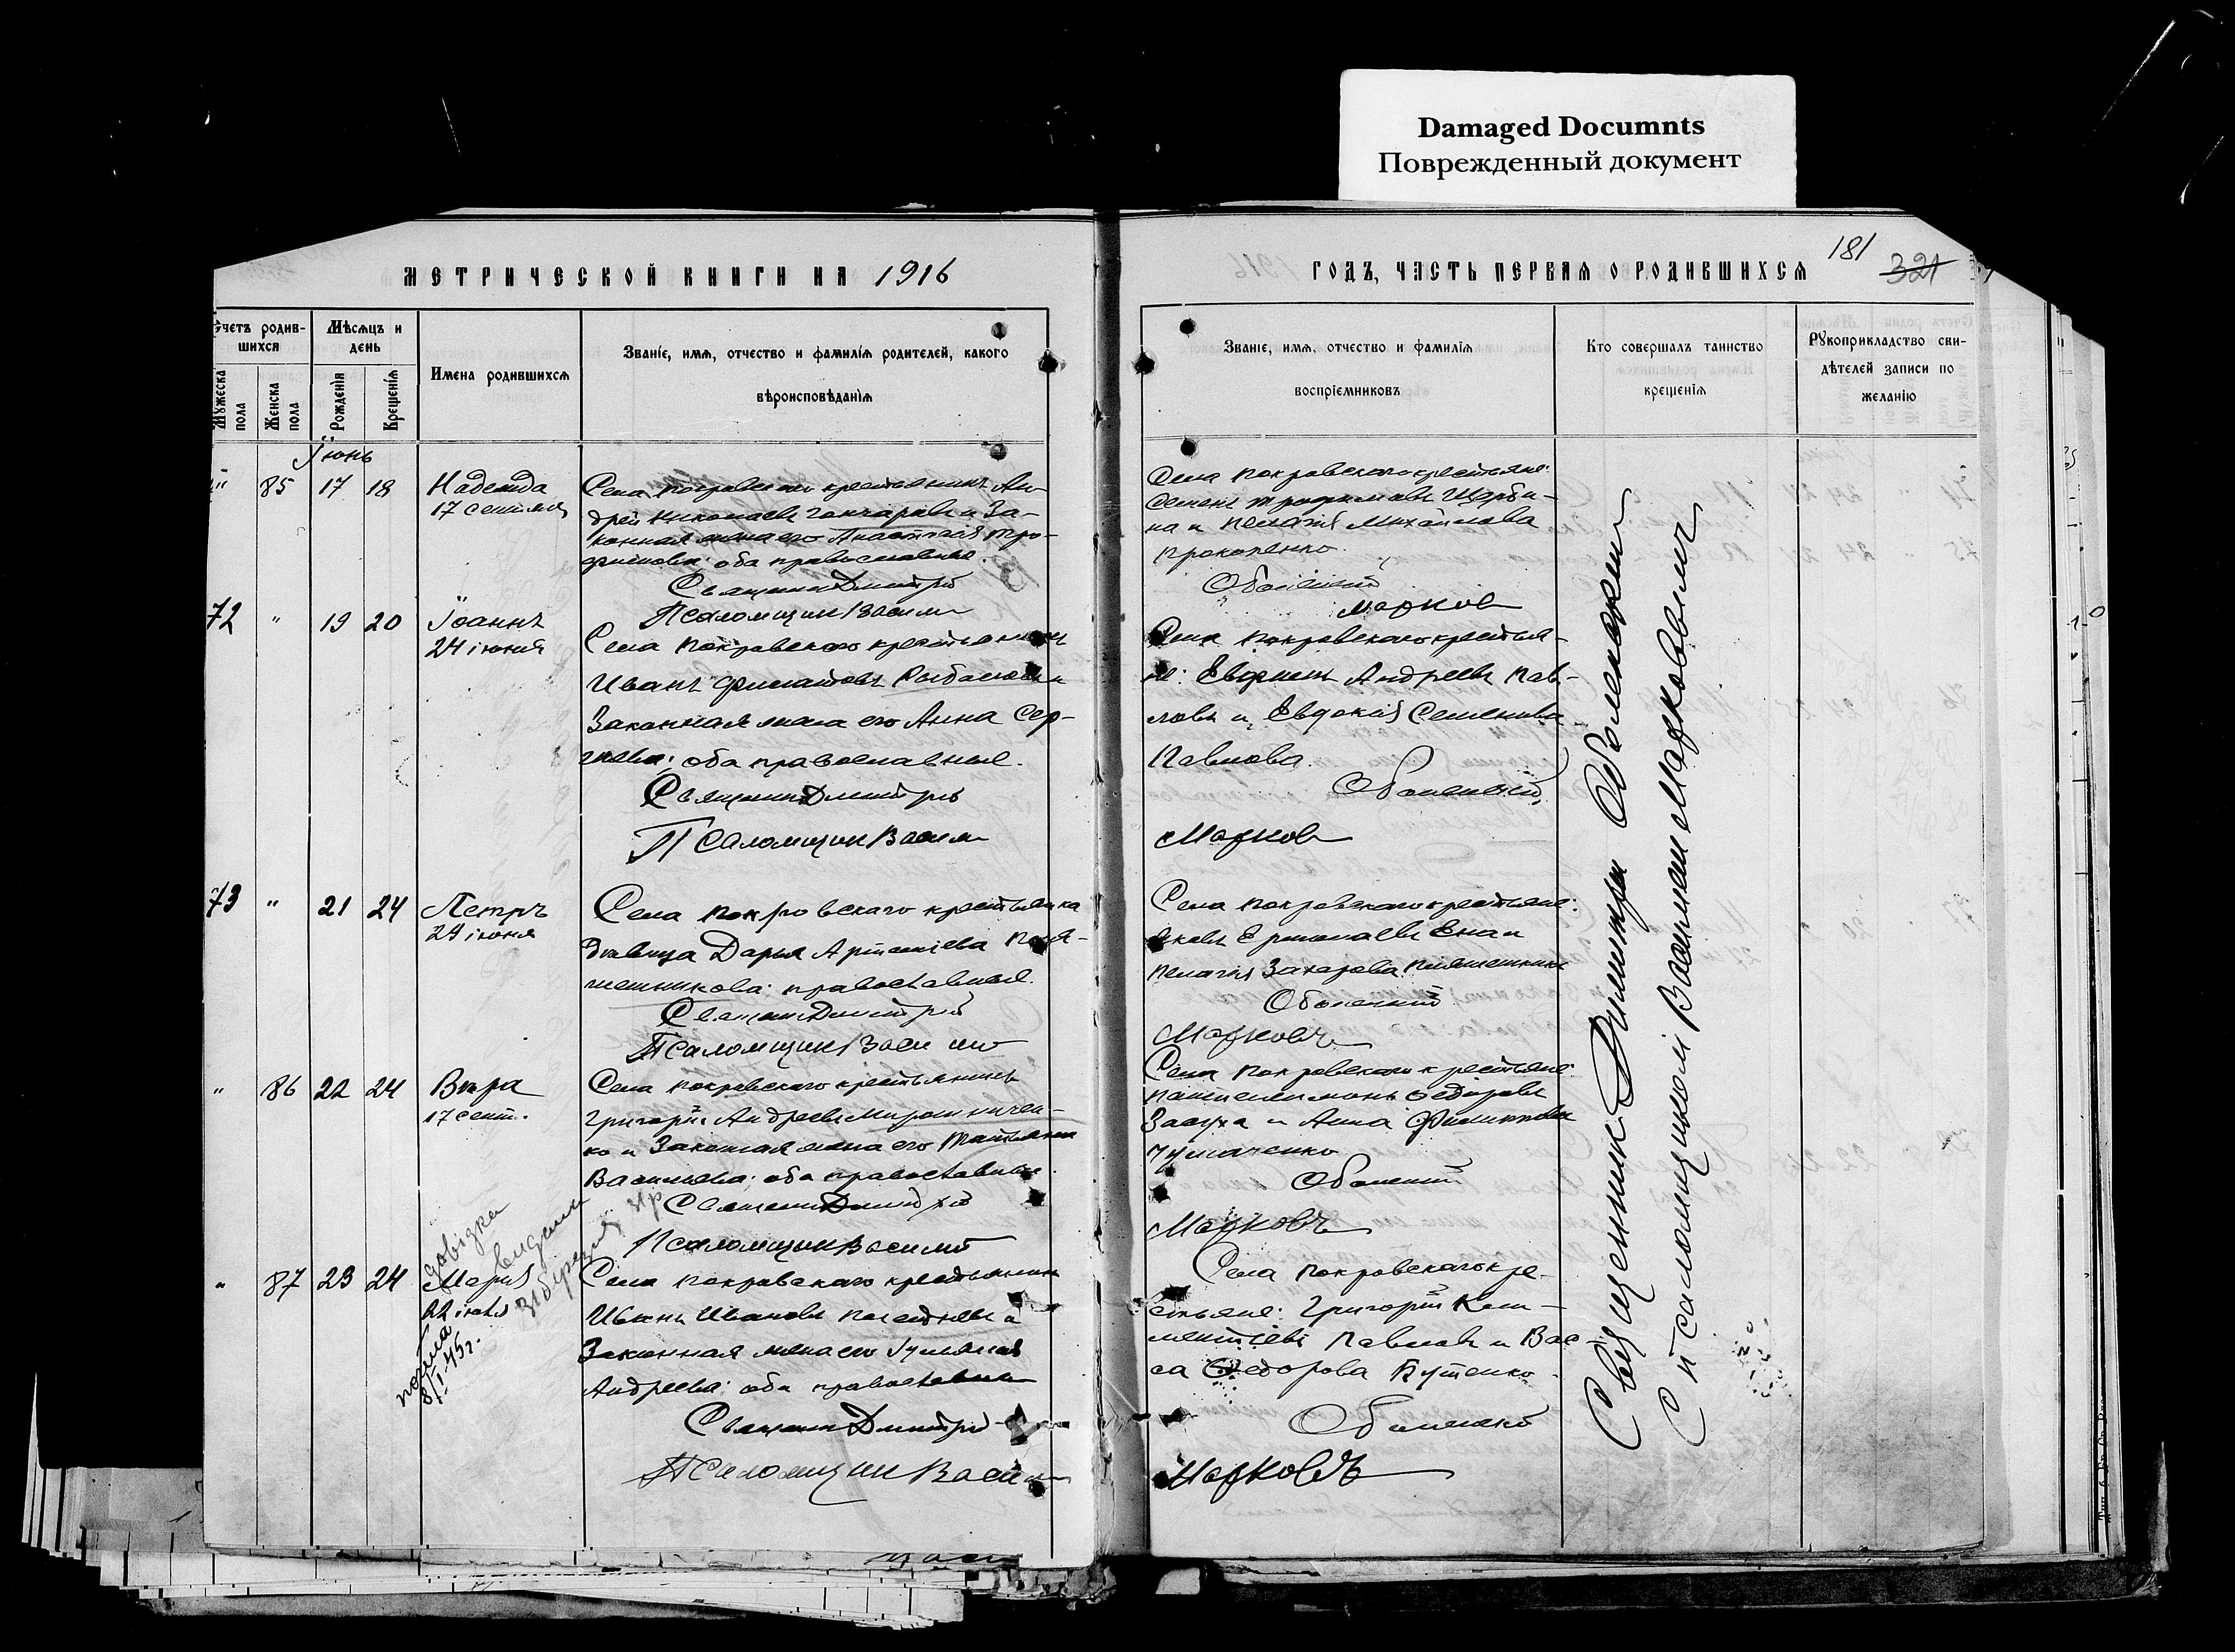 Damaged Documnts
Поврежденный документ
МЕТРИЧЕСКОЙ КНИГИ НА 1916
ГОДЪ, ЧАСТЬ ПЕРВАЯ О РОДИВШИХСЯ
181
321
Счетъ родив-
шихся
Мужеска
пола
Женска
пола
Мѣсяцъ и
день
Рожденія
Крещенія
Имена родившихся
Званіе, имя, отчество и фамилія родителей, какого
вѣроисповѣданія
Званіе, имя, отчество и фамилія
воспріемниковъ
Кто совершалъ таинство
крещенія
Рукоприкладство сви-
дѣтелей записи по
желанію
Іюнь
" 85 17 18
Надежда
17 сентября
Села Покровскаго крестьянинъ Ан-
дрей Николаевъ Гончаровъ и за-
конная жена его Анастасія Тро-
фимова; оба православные.
Священникъ Дмитрій
Псаломщикъ Василій
Села Покровскаго крестьяне:
Семенъ Трофимовъ Щерби-
на и Пелагія Михайлова
Прокопенко.
Оболенскій
Марковъ
72 " 19 20
Іоаннъ
24 іюня
Села Покровскаго крестьянинъ
Иванъ Филатовъ и
Законная жена его Анна Сер-
гѣева; оба православные.
Священникъ Дмитрій
Псаломщикъ Василій
Села Покровскаго крестья-
не: Евфимъ Андреевъ Пав-
ловъ и Евдокія Семенова
Павлова.
Оболенскій
Марковъ
73 " 21 24
Петръ
29 іюня
Села Покровскаго крестьянка
дѣвица Дарья Артемьева
православная.
Священникъ Дмитрій
Псаломщикъ Василій
Села Покровскаго крестьяне:
Яковъ Ермолаевъ и
Пелагія Захарова
Оболенскій
Марковъ
" 86 22 24
Вѣра
17 сент.
Села Покровскаго крестьянинъ
Григорій Андреевъ Мирошничен-
ко и Законная жена его Татьяна
Васильева; оба православные.
Священникъ Дмитрій
Псаломщикъ Василій
Села Покровскаго крестьяне:
Пантелеимонъ Ѳедоровъ
и Анна Филиппова
Чумаченко
Оболенскій
Марковъ
" 87 23 24
Марія
22 іюля
довідка
видана
8/I.45г.
Села Покровскаго крестьянинъ
Иванъ Ивановъ и
Законная жена его Іуліанія
Андреева; оба православные
Священникъ Дмитрій
Псаломщикъ Василій
Села Покровскаго кре-
стьяне: Григорій Кли-
ментіевъ Павловъ и Вас-
са Ѳедорова Бутенко.
Оболенскій
Марковъ
Священникъ Димитрій Оболенскій
С псаломщикомъ Василіемъ Марковымъ